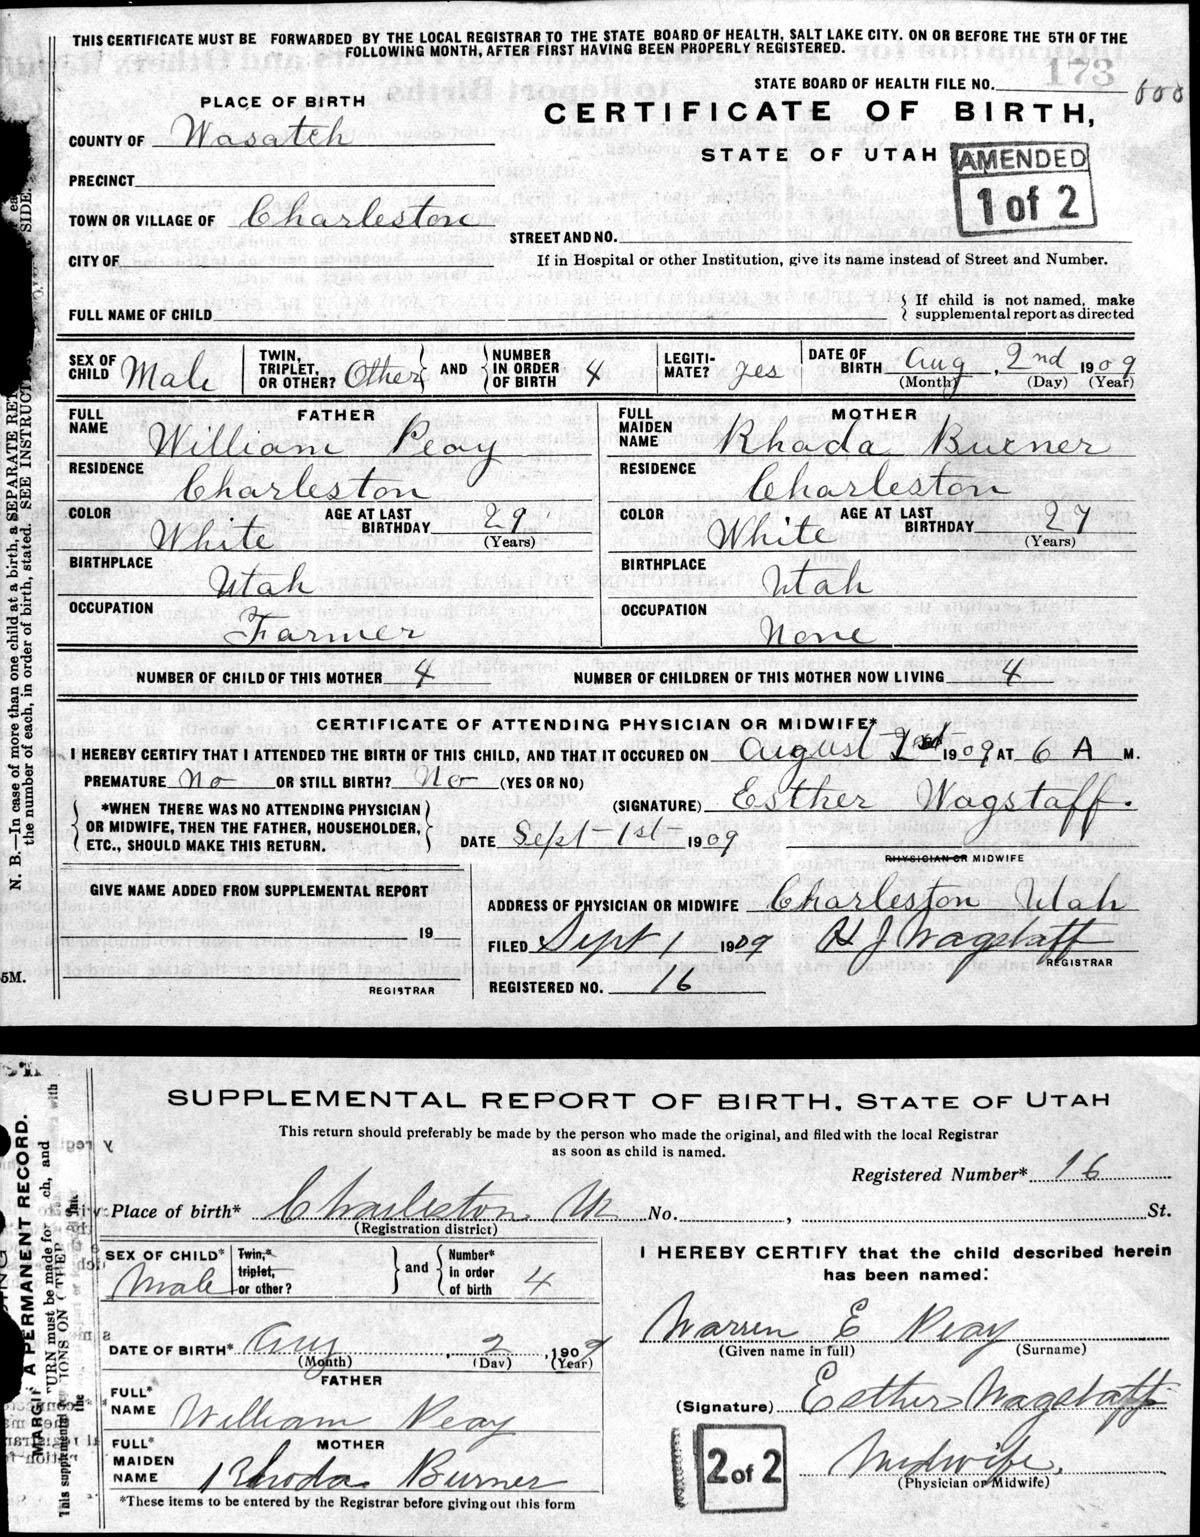 THIS CERTIFICATE MUST BE FORWARDED BY THE LOCAL REGISTRAR TO THE STATE BOARD OF HEALTH, SALT LAKE CITY. ON OR BEFORE THE 5TH OF THE
FOLLOWING MONTH, AFTER FIRST HAVING BEEN PROPERLY REGISTERED.
173
STATE BOARD OF HEALTH FILE NO.
PLACE OF BIRTH
CERTIFICATE OF BIRTH,
COUNTY OF Wasatch
STATE OF UTAH
AMENDED
1 of 2
PRECINCT
TOWN OR VILLAGE OF Charleston
STREET AND NO.
CITY OF
If in Hospital or other Institution, give its name instead of Street and Number.
FULL NAME OF CHILD
If child is not named, make
supplemental report as directed
SEX OF CHILD Male
TWIN, TRIPLET, OR OTHER? Other AND NUMBER IN ORDER OF BIRTH 4
LEGITI-MATE? yes
DATE OF BIRTH Aug, 2nd 1909
(Month) (Day) (Year)
FATHER
FULL NAME William Peay
RESIDENCE Charleston
COLOR White AGE AT LAST BIRTHDAY 29 (Years)
BIRTHPLACE Utah
OCCUPATION Farmer
MOTHER
FULL MAIDEN NAME Rhoda Burner
RESIDENCE Charleston
COLOR White AGE AT LAST BIRTHDAY 27 (Years)
BIRTHPLACE Utah
OCCUPATION None
NUMBER OF CHILD OF THIS MOTHER 4 NUMBER OF CHILDREN OF THIS MOTHER NOW LIVING 4
CERTIFICATE OF ATTENDING PHYSICIAN OR MIDWIFE*
I HEREBY CERTIFY THAT I ATTENDED THE BIRTH OF THIS CHILD, AND THAT IT OCCURED ON August 1909 AT 6 A M.
PREMATURE No OR STILL BIRTH? No (YES OR NO)
*WHEN THERE WAS NO ATTENDING PHYSICIAN
OR MIDWIFE, THEN THE FATHER, HOUSEHOLDER,
ETC., SHOULD MAKE THIS RETURN.
(SIGNATURE) Esther Wagstaff.
DATE Sept-1st- 1909
PHYSICIAN OR MIDWIFE
GIVE NAME ADDED FROM SUPPLEMENTAL REPORT
19
REGISTRAR
ADDRESS OF PHYSICIAN OR MIDWIFE Charleston Utah
FILED Sept 1 1909 H J Wagstaff
REGISTRAR
REGISTERED NO. 16
5M.
N. B.—In case of more than one child at a birth, a SEPARATE RET
the number of each, in order of birth, stated. SEE INSTRUCT
SIDE.
SUPPLEMENTAL REPORT OF BIRTH, STATE OF UTAH
This return should preferably be made by the person who made the original, and filed with the local Registrar
as soon as child is named.
Registered Number* 16
Place of birth* Charleston Ut No. , St.
(Registration district)
SEX OF CHILD* Male
Twin,* triplet, or other? and Number* in order of birth 4
DATE OF BIRTH* Aug, 2, 1909
(Month) (Day) (Year)
FATHER
FULL* NAME William Peay
MOTHER
FULL* MAIDEN NAME Rhoda Burner
*These items to be entered by the Registrar before giving out this form
I HEREBY CERTIFY that the child described herein
has been named:
Warren E Peay
(Given name in full) (Surname)
(Signature) Esther Wagstaff
2 of 2
Midwife.
(Physician or Midwife)
A PERMANENT RECORD.
URN must be made for ch, and
This supplemental